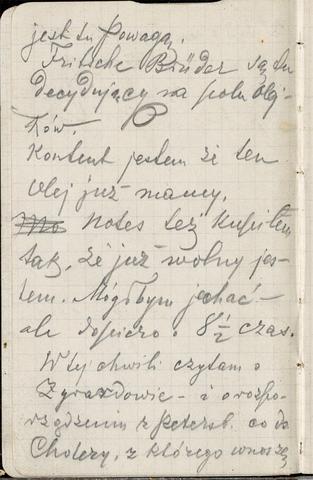 jest tu Powagą.
Fritsche Brüder są tu
decydujący na polu Olej-
ków.
Kontent jestem że ten
olej już mamy.
Notes też kupiłem
tak, że już wolny jes-
tem. Mógłbym jechać —
ale dopiero o 8 1/2 czas.
W tej chwili czytam o
Żyrardowie — i o rozpo-
rządzeniu z Petersb. co do
Cholery, z którego wnoszę